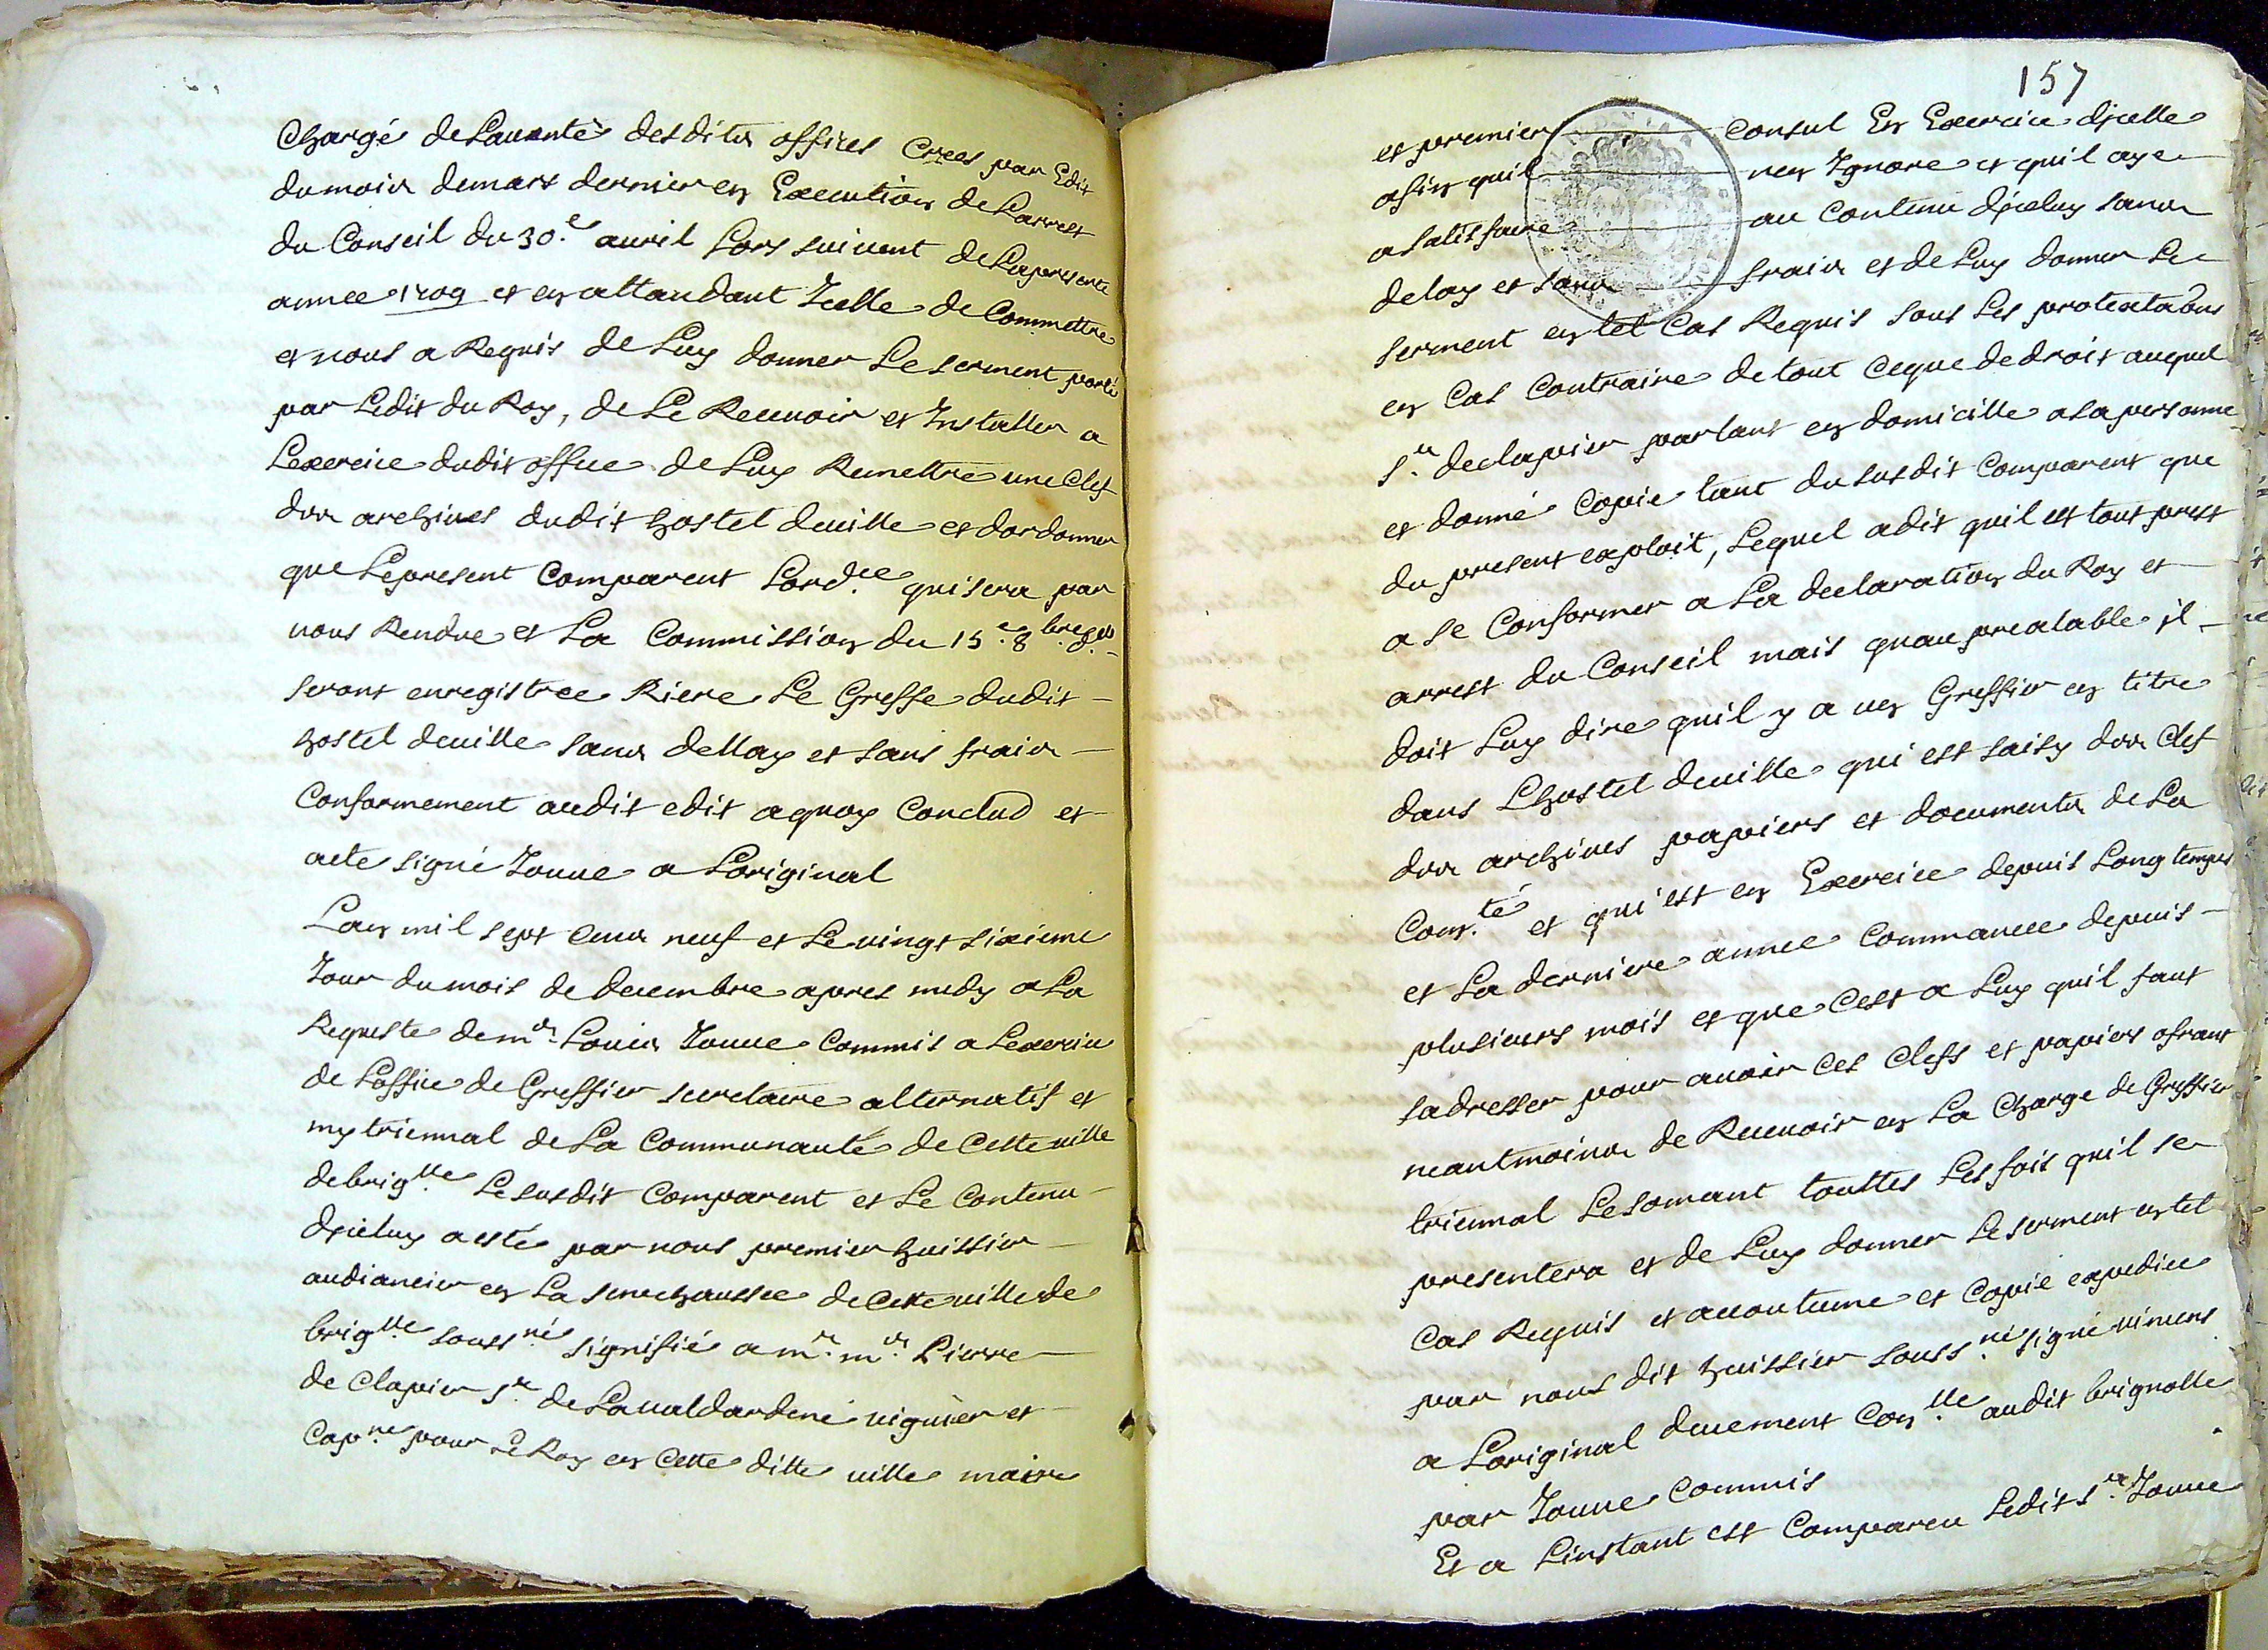 Chargé de Lauantè desdits offices Crees par Edit
du mois de mars dernier en Execution de Larrest
du Conseil du 30.e auril Lors suiuent de La presente
annee 1709 et en attandant Icelle de Commettre
et nous a Requis de Luy donner Le serment porté
par Ledit du Roy, de Le Receuoir et Installer a
Lexercice dudit office de Luy Remettre une Clef
des archiues dudit hostel deuille et dordonner
que Le present Comparent Lord.ce qui sera par
nous Rendue et La Commission du 15.e 8.bre d.er
seront enregistree Riere Le Greffe dudit
hostel deuille sans dellay et sans frais
Conformement audit edit aquoy Conclud et
acte signé Jouue a Loriginal
Lan mil sept cens neuf et Le uingt sixieme
Jour du mois de decembre apres midy a La
Requeste de me. Louis Jouue Commis a Lexercice
de Loffice de Greffier secretaire alternatif et
my triennal de La Communauté de Cette uille
de brig.lle Le susdit Comparent et Le Contenu
djceluy a esté par nous premier huissier
audiancier en La senechaussee de Cette uille de
brig.lle souss.né signifié a mr. me. Pierre
de Clapier sr. de Laualdardene uiguier et
Cap.ne pour Le Roy en Cette ditte uille maire
157
et premier Consul En Exercice djcelle
afin quil nen Ignore et quil aye
a satisfaire au Contenu djceluy sans
delay et sans frais et de Luy donner Le
serment en tel Cas Requis sous Les protestaõns
en Cas Contraire de tout Ceque de droit auquel
sr. declapier parlant en domicille a sa personne
et donné Copie tant du susdit Comparent que
du present exploit, Lequel a dit quil est tout prest
a se Conformer a La declaration du Roy et
arrest du Conseil mais quau prealable jl
doit Luy dire quil y a un Greffier en titre
dans Lhostel deuille qui est saisy des Clef
des archiues papiers et documents de La
Com.té et qui est en Exercice depuis Long temps
et La derniere annee Commancee depuis
plusieurs mois et que Cest a Luy quil faut
sadresser pour auoir Ces Clefs et papiers ofrant
neantmoins de Receuoir en La Charge de Greffier
triennal Le somant touttes Les fois quil se
presentera et de Luy donner Le serment en tel
Cas Requis et accoutume et Copie expediee
par nous dit huissier souss.né signé uimens
a Loriginal deuement Con.lle audit brignolle
par Jouue Commis
Et a Linstant est Compareu Ledit sr. Jouue